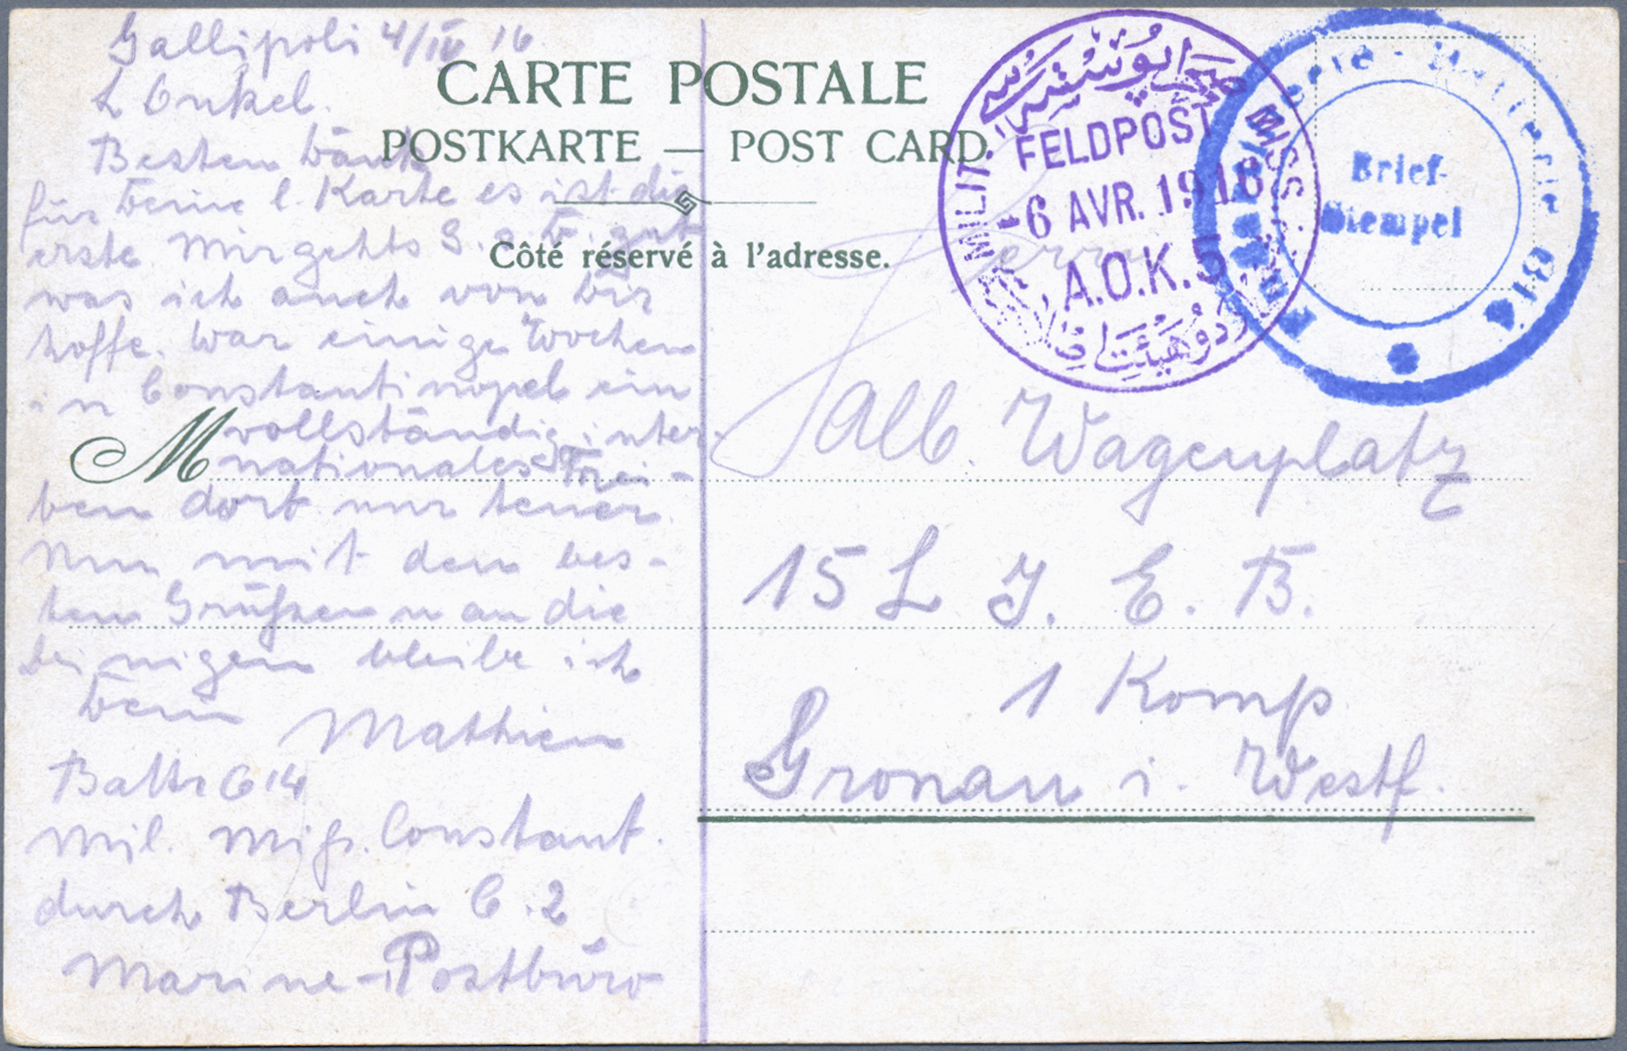 Gallipoli 4/IV 16
L Onkel.
Besten Dank
für Deine l. Karte es ist die
erste. Mir gehts G. s. D. gut
was ich auch von Dir
hoffe. War einige Wochen
in Constantinopel ein
vollständig inter-
nationales Trei-
ben dort nur teuer.
Nun mit den bes-
ten Grüßen u an die
deinigen bleibe ich
Dein Mathieu
Battr 614
Mil. Miss. Constant.
durch Berlin C. 2
Marine-Postbüro
CARTE POSTALE
POSTKARTE — POST CARD
Côté réservé à l'adresse.
MILIT. MISS.
FELDPOST
-6 AVR. 1916
A.O.K. 5
Batterie 614
Brief-
Stempel
M
Herrn
Alb. Wagenplatz
15 L I. E. B.
1 Komp.
Gronau i. Westf.